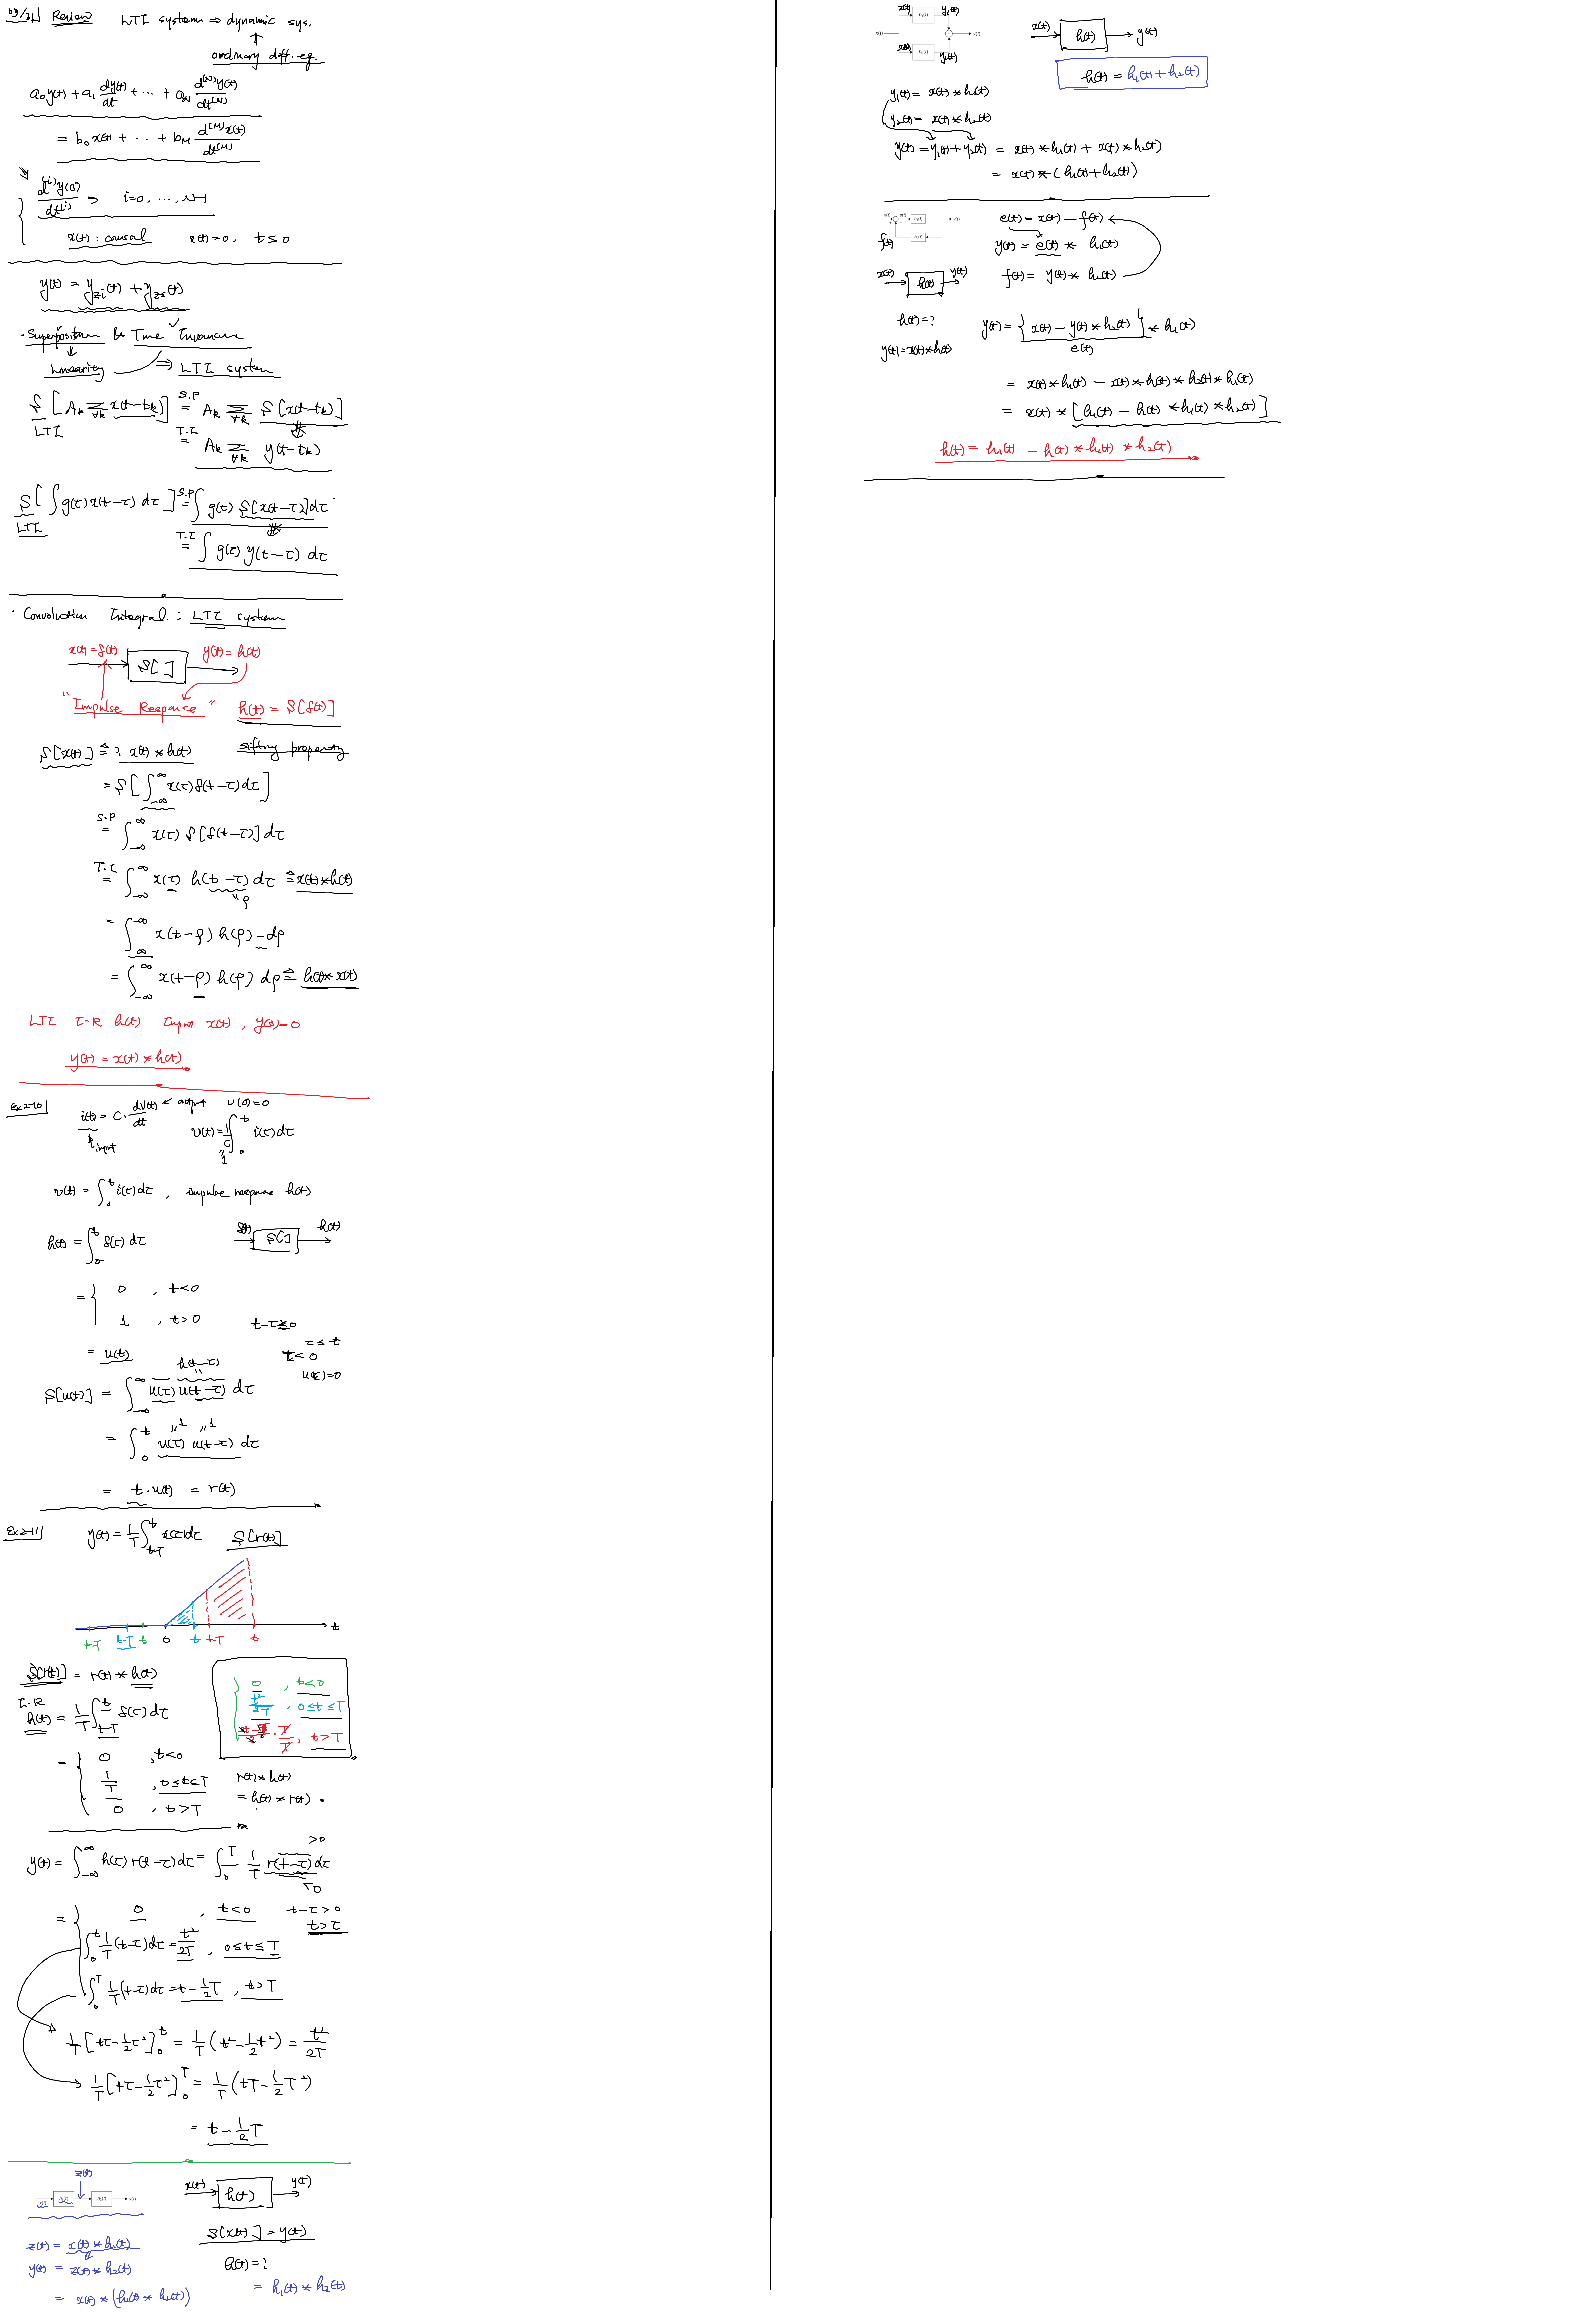 03/31 Review LTI system ⇒ dynamic sys.
⇑
ordinary diff. eq.
a₀y(t) + a₁ dy(t)/dt + ··· + a_N d^(N)y(t)/dt^(N)
= b₀x(t) + ··· + b_M d^(M)x(t)/dt^(M)
d^(i)y(0)/dt^(i) ⇒ i=0, ···, N-1
x(t) : causal x(t)=0, t≤0
y(t) = y_zi(t) + y_zs(t)
· Superposition & Time Invariance
⇓
Linearity ⇒ LTI system
S[A_k Σ_∀k x(t-t_k)] =^{S.P} A_k Σ_∀k S[x(t-t_k)]
LTI
=^{T.I} A_k Σ_∀k y(t-t_k)
S[∫g(τ)x(t-τ)dτ] =^{S.P} ∫g(τ)S[x(t-τ)]dτ
LTI
=^{T.I} ∫g(τ)y(t-τ)dτ
· Convolution Integral : LTI system
x(t)=δ(t) S[ ] y(t)=h(t)
"Impulse Response" h(t) = S[δ(t)]
S[x(t)] ≜ ? x(t)*h(t) sifting property
= S[∫_{-∞}^{∞} x(τ)δ(t-τ)dτ]
=^{S.P} ∫_{-∞}^{∞} x(τ) S[δ(t-τ)]dτ
=^{T.I} ∫_{-∞}^{∞} x(τ) h(t-τ)dτ ≜ x(t)*h(t)
" ρ
= ∫_{∞}^{-∞} x(t-ρ) h(ρ) -dρ
= ∫_{-∞}^{∞} x(t-ρ) h(ρ) dρ ≜ h(t)*x(t)
LTI I-R h(t) Input x(t), y(0)=0
y(t) = x(t)*h(t)
Ex2-10 i(t) = C· dv(t)/dt ← output v(0)=0
input v(t) = 1/C ∫_0^t i(τ)dτ
" 1
v(t) = ∫_0^t i(τ)dτ, impulse response h(t)
h(t) = ∫_{0-}^t δ(τ)dτ δ(t) S[ ] h(t)
= { 0 , t<0
1 , t>0 t-τ≥0
τ≤t
= u(t) τ<0
h(t-τ) u(τ)=0
S[u(t)] = ∫_{-∞}^{∞} u(τ)u(t-τ)dτ
"1 "1
= ∫_0^t u(τ)u(t-τ)dτ
= t·u(t) = r(t)
Ex2-11 y(t) = 1/T ∫_{t-T}^t x(τ)dτ S[r(t)]
t
t-T t-T t 0 t t-T t
S[r(t)] = r(t)*h(t)
{ 0 , t<0
t²/2T , 0≤t≤T
, t>T
I.R
h(t) = 1/T ∫_{t-T}^t δ(τ)dτ
= { 0 , t<0
1/T , 0≤t≤T r(t)*h(t)
0 , t>T = h(t)*r(t).
>0
y(t) = ∫_{-∞}^{∞} h(τ)r(t-τ)dτ = ∫_0^T 1/T r(t-τ)dτ
= { 0 , t<0 t-τ>0
t>τ
∫_0^t 1/T (t-τ)dτ = t²/2T , 0≤t≤T
∫_0^T 1/T (t-τ)dτ = t-½T , t>T
1/T [tτ-½τ²]_0^t = 1/T (t²-½t²) = t²/2T
1/T [tτ-½τ²]_0^T = 1/T (tT-½T²)
= t-½T
z(t)
x(t) h₁(t) h₂(t) y(t)
x(t) h(t) y(t)
S[x(t)] = y(t)
z(t) = x(t)*h₁(t)
h(t)=?
y(t) = z(t)*h₂(t)
= h₁(t)*h₂(t)
= x(t)*(h₁(t)*h₂(t))
x(t) h₁(t) y₁(t)
x(t) y(t)
x(t) h₂(t) y₂(t)
x(t) h(t) y(t)
h(t) = h₁(t)+h₂(t)
y₁(t) = x(t)*h₁(t)
y₂(t) = x(t)*h₂(t)
y(t) = y₁(t)+y₂(t) = x(t)*h₁(t) + x(t)*h₂(t)
= x(t)*(h₁(t)+h₂(t))
x(t) e(t) h₁(t) y(t)
f(t) h₂(t)
e(t) = x(t)-f(t)
y(t) = e(t)* h₁(t)
x(t) h(t) y(t)
f(t) = y(t)* h₂(t)
h(t)=?
y(t)=x(t)*h(t)
y(t) = { x(t) - y(t)*h₂(t) } * h₁(t)
e(t)
= x(t)*h₁(t) - x(t)*h(t)*h₂(t)*h₁(t)
= x(t)*[h₁(t) - h(t)*h₁(t)*h₂(t)]
h(t) = h₁(t) - h(t)*h₁(t)*h₂(t)